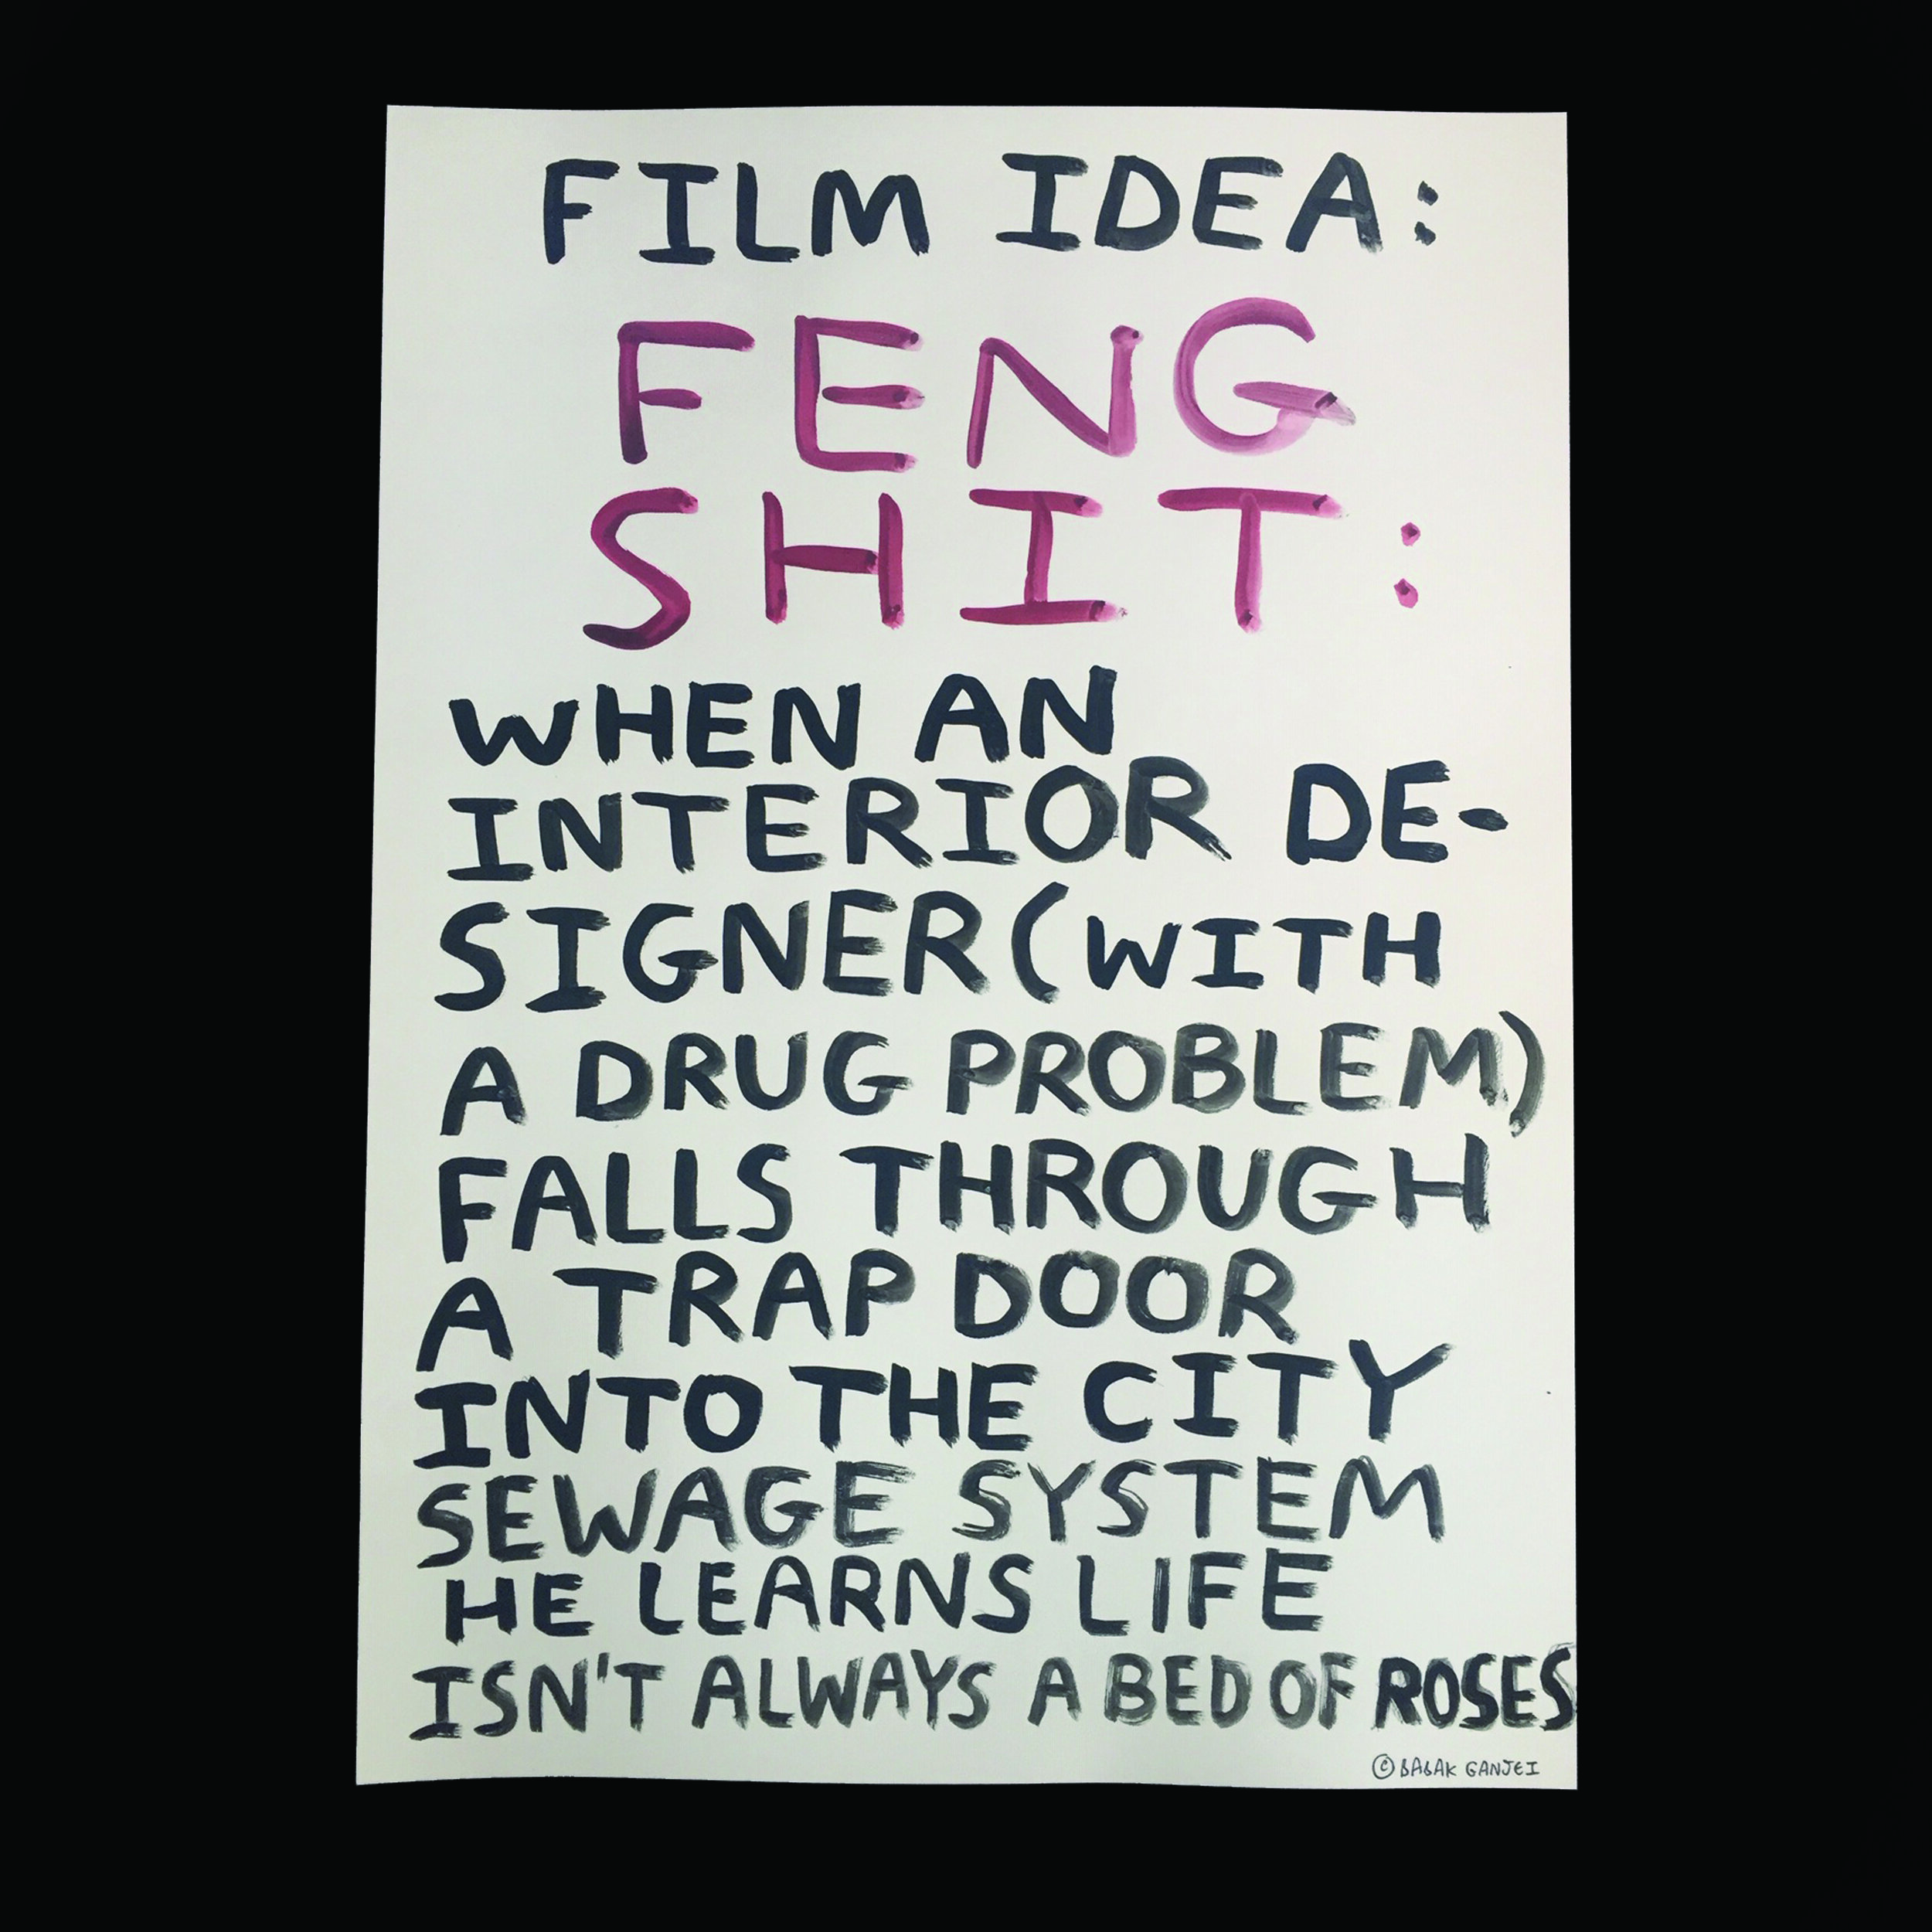 FILM IDEA:
FENG
SHIT:
WHEN AN
INTERIOR DE-
SIGNER (WITH
A DRUG PROBLEM)
FALLS THROUGH
A TRAP DOOR
INTO THE CITY
SEWAGE SYSTEM
HE LEARNS LIFE
ISN'T ALWAYS A BED OF ROSES
© BABAK GANJEI